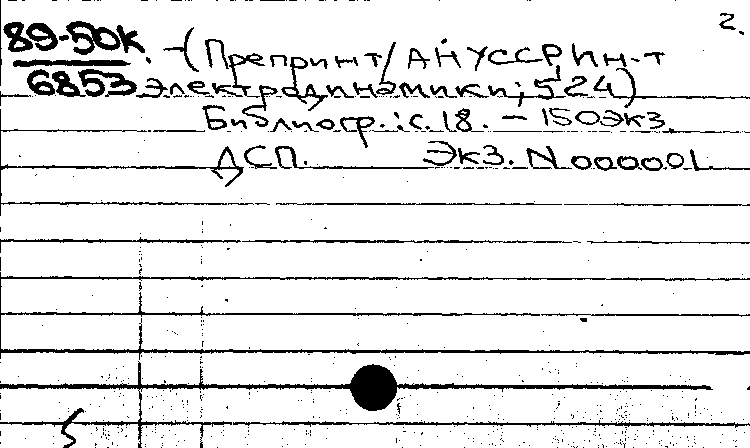 2.
89-50к. -(Препринт/АН УССР Ин-т
6853 электродинамики; 524)
Библиогр.: с. 18. - 150 экз.
ДСП. Экз. N 000001
5